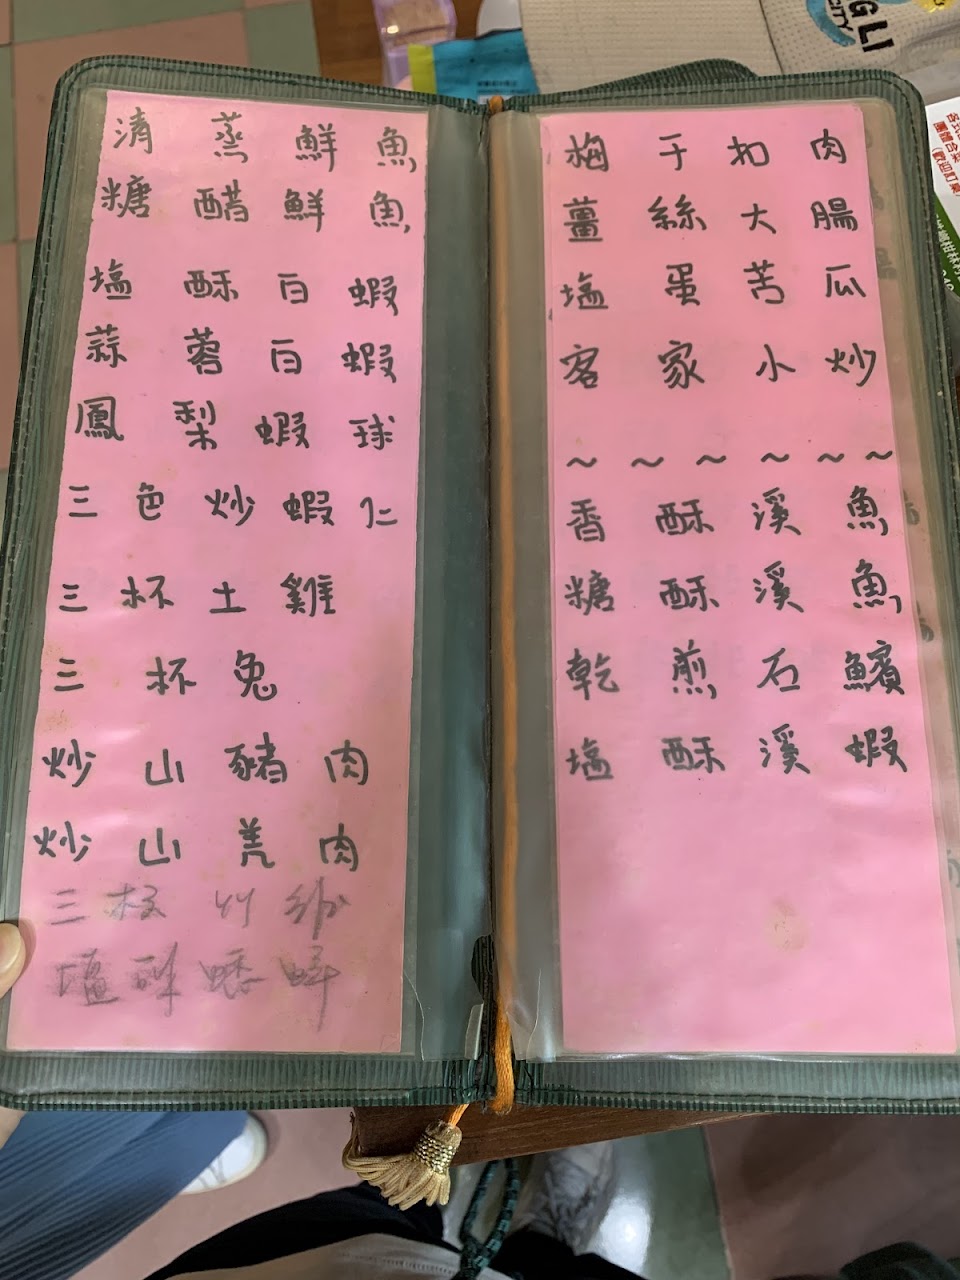 清蒸鮮魚
糖醋鮮魚
塩酥白蝦
蒜蓉白蝦
鳳梨蝦球
三色炒蝦仁
三杯土雞
三杯兔
炒山豬肉
炒山羌肉
三杯
梅干扣肉
薑絲大腸
塩蛋苦瓜
客家小炒
～～～～～～
香酥溪魚
糖酥溪魚
乾煎石鱝
塩酥溪蝦
GLI
CITY